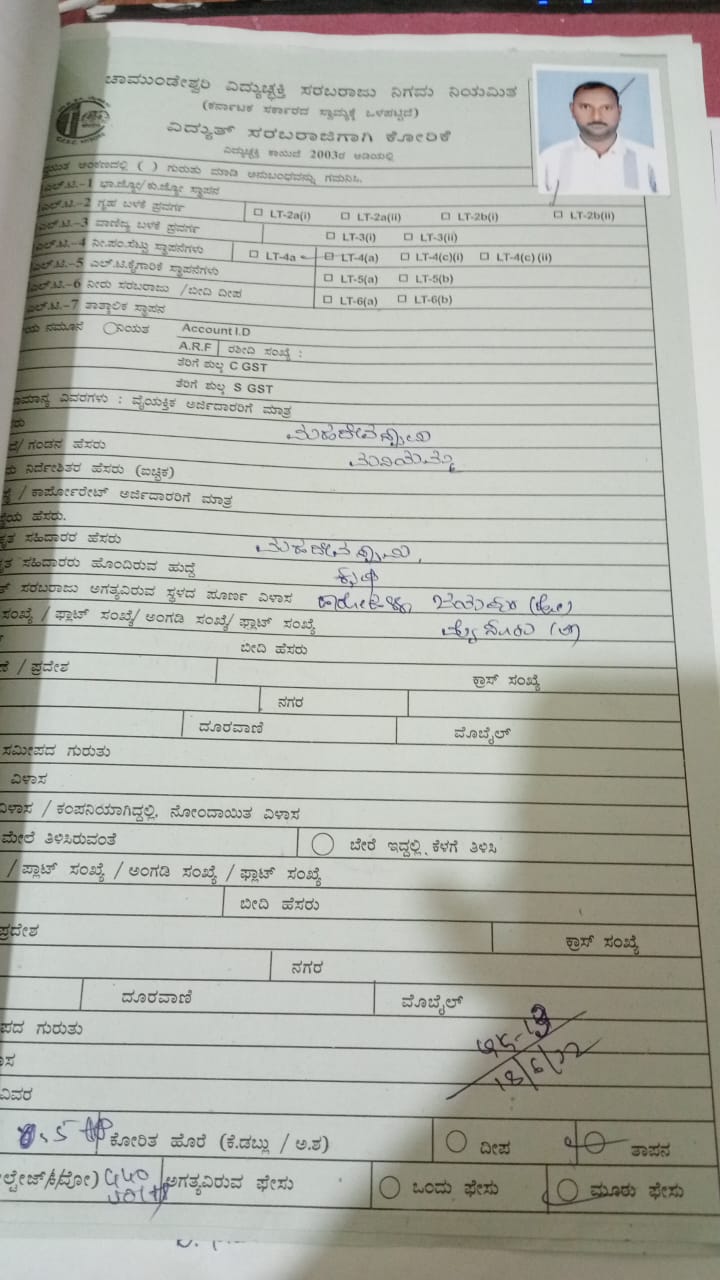 ಚಾಮುಂಡೇಶ್ವರಿ ವಿದ್ಯುಚ್ಛಕ್ತಿ ಸರಬರಾಜು ನಿಗಮ ನಿಯಮಿತ
(ಕರ್ನಾಟಕ ಸರ್ಕಾರದ ಸ್ವಾಮ್ಯಕ್ಕೆ ಒಳಪಟ್ಟಿದೆ)
ವಿದ್ಯುತ್ ಸರಬರಾಜಿಗಾಗಿ ಕೋರಿಕೆ
ವಿದ್ಯುಚ್ಛಕ್ತಿ ಕಾಯಿದೆ 2003ರ ಅಡಿಯಲ್ಲಿ
ಅಂಕಣದಲ್ಲಿ ( ) ಗುರುತು ಮಾಡಿ ಅನುಬಂಧವನ್ನು ಗಮನಿಸಿ.
ಎಲ್.ಟಿ.-1 ಭಾ.ಜ್ಯೋ/ಕು.ಜ್ಯೋ ಸ್ಥಾಪನ
ಎಲ್.ಟಿ.-2 ಗೃಹ ಬಳಕೆ ಪ್ರವರ್ಗ LT-2a(i) LT-2a(ii) LT-2b(i) LT-2b(ii)
ಎಲ್.ಟಿ.-3 ವಾಣಿಜ್ಯ ಬಳಕೆ ಪ್ರವರ್ಗ LT-3(i) LT-3(ii)
ಎಲ್.ಟಿ.-4 ನೀ.ಪಂ.ಸೆಟ್ಟು ಸ್ಥಾಪನೆಗಳು LT-4a LT-4(a) LT-4(c)(i) LT-4(c)(ii)
ಎಲ್.ಟಿ.-5 ಎಲ್.ಟಿ.ಕೈಗಾರಿಕೆ ಸ್ಥಾಪನೆಗಳು LT-5(a) LT-5(b)
ಎಲ್.ಟಿ.-6 ನೀರು ಸರಬರಾಜು /ಬೀದಿ ದೀಪ LT-6(a) LT-6(b)
ಎಲ್.ಟಿ.-7 ತಾತ್ಕಾಲಿಕ ಸ್ಥಾಪನ
ನಮೂನೆ ನಿಯತ Account I.D
A.R.F ರಶೀದಿ ಸಂಖ್ಯೆ :
ತೆರಿಗೆ ಶುಲ್ಕ C GST
ತೆರಿಗೆ ಶುಲ್ಕ S GST
ವಿವರಗಳು : ವೈಯಕ್ತಿಕ ಅರ್ಜಿದಾರರಿಗೆ ಮಾತ್ರ
ಮಹದೇವಸ್ವಾಮಿ
ಗಂಡನ ಹೆಸರು
ನಿರ್ದೇಶಿತರ ಹೆಸರು (ಐಚ್ಛಿಕ)
/ ಕಾರ್ಪೋರೇಟ್ ಅರ್ಜಿದಾರರಿಗೆ ಮಾತ್ರ
ಹೆಸರು.
ಸಹಿದಾರರ ಹೆಸರು ಮಹದೇವಸ್ವಾಮಿ.
ಸಹಿದಾರರು ಹೊಂದಿರುವ ಹುದ್ದೆ ಕೃಷಿ
ಸರಬರಾಜು ಅಗತ್ಯವಿರುವ ಸ್ಥಳದ ಪೂರ್ಣ ವಿಳಾಸ ಜಯಪುರ (ಹೋ)
ಸಂಖ್ಯೆ / ಫ್ಲಾಟ್ ಸಂಖ್ಯೆ/ ಅಂಗಡಿ ಸಂಖ್ಯೆ/ ಫ್ಲಾಟ್ ಸಂಖ್ಯೆ ಮೈಸೂರು (ತಾ)
ಬೀದಿ ಹೆಸರು
/ ಪ್ರದೇಶ ಕ್ರಾಸ್ ಸಂಖ್ಯೆ
ನಗರ
ದೂರವಾಣಿ ಮೊಬೈಲ್
ಸಮೀಪದ ಗುರುತು
ವಿಳಾಸ
ವಿಳಾಸ / ಕಂಪನಿಯಾಗಿದ್ದಲ್ಲಿ, ನೋಂದಾಯಿತ ವಿಳಾಸ
ಮೇಲೆ ತಿಳಿಸಿರುವಂತೆ ಬೇರೆ ಇದ್ದಲ್ಲಿ ಕೆಳಗೆ ತಿಳಿಸಿ
/ ಪ್ಲಾಟ್ ಸಂಖ್ಯೆ / ಅಂಗಡಿ ಸಂಖ್ಯೆ / ಫ್ಲಾಟ್ ಸಂಖ್ಯೆ
ಬೀದಿ ಹೆಸರು
ಪ್ರದೇಶ ಕ್ರಾಸ್ ಸಂಖ್ಯೆ
ನಗರ
ದೂರವಾಣಿ ಮೊಬೈಲ್
ಗುರುತು
ವಿವರ
ಕೋರಿತ ಹೊರೆ (ಕೆ.ಡಬ್ಲು / ಅ.ಶ) ದೀಪ ತಾಪನ
ಅಗತ್ಯವಿರುವ ಫೇಸು ಒಂದು ಫೇಸು ಮೂರು ಫೇಸು